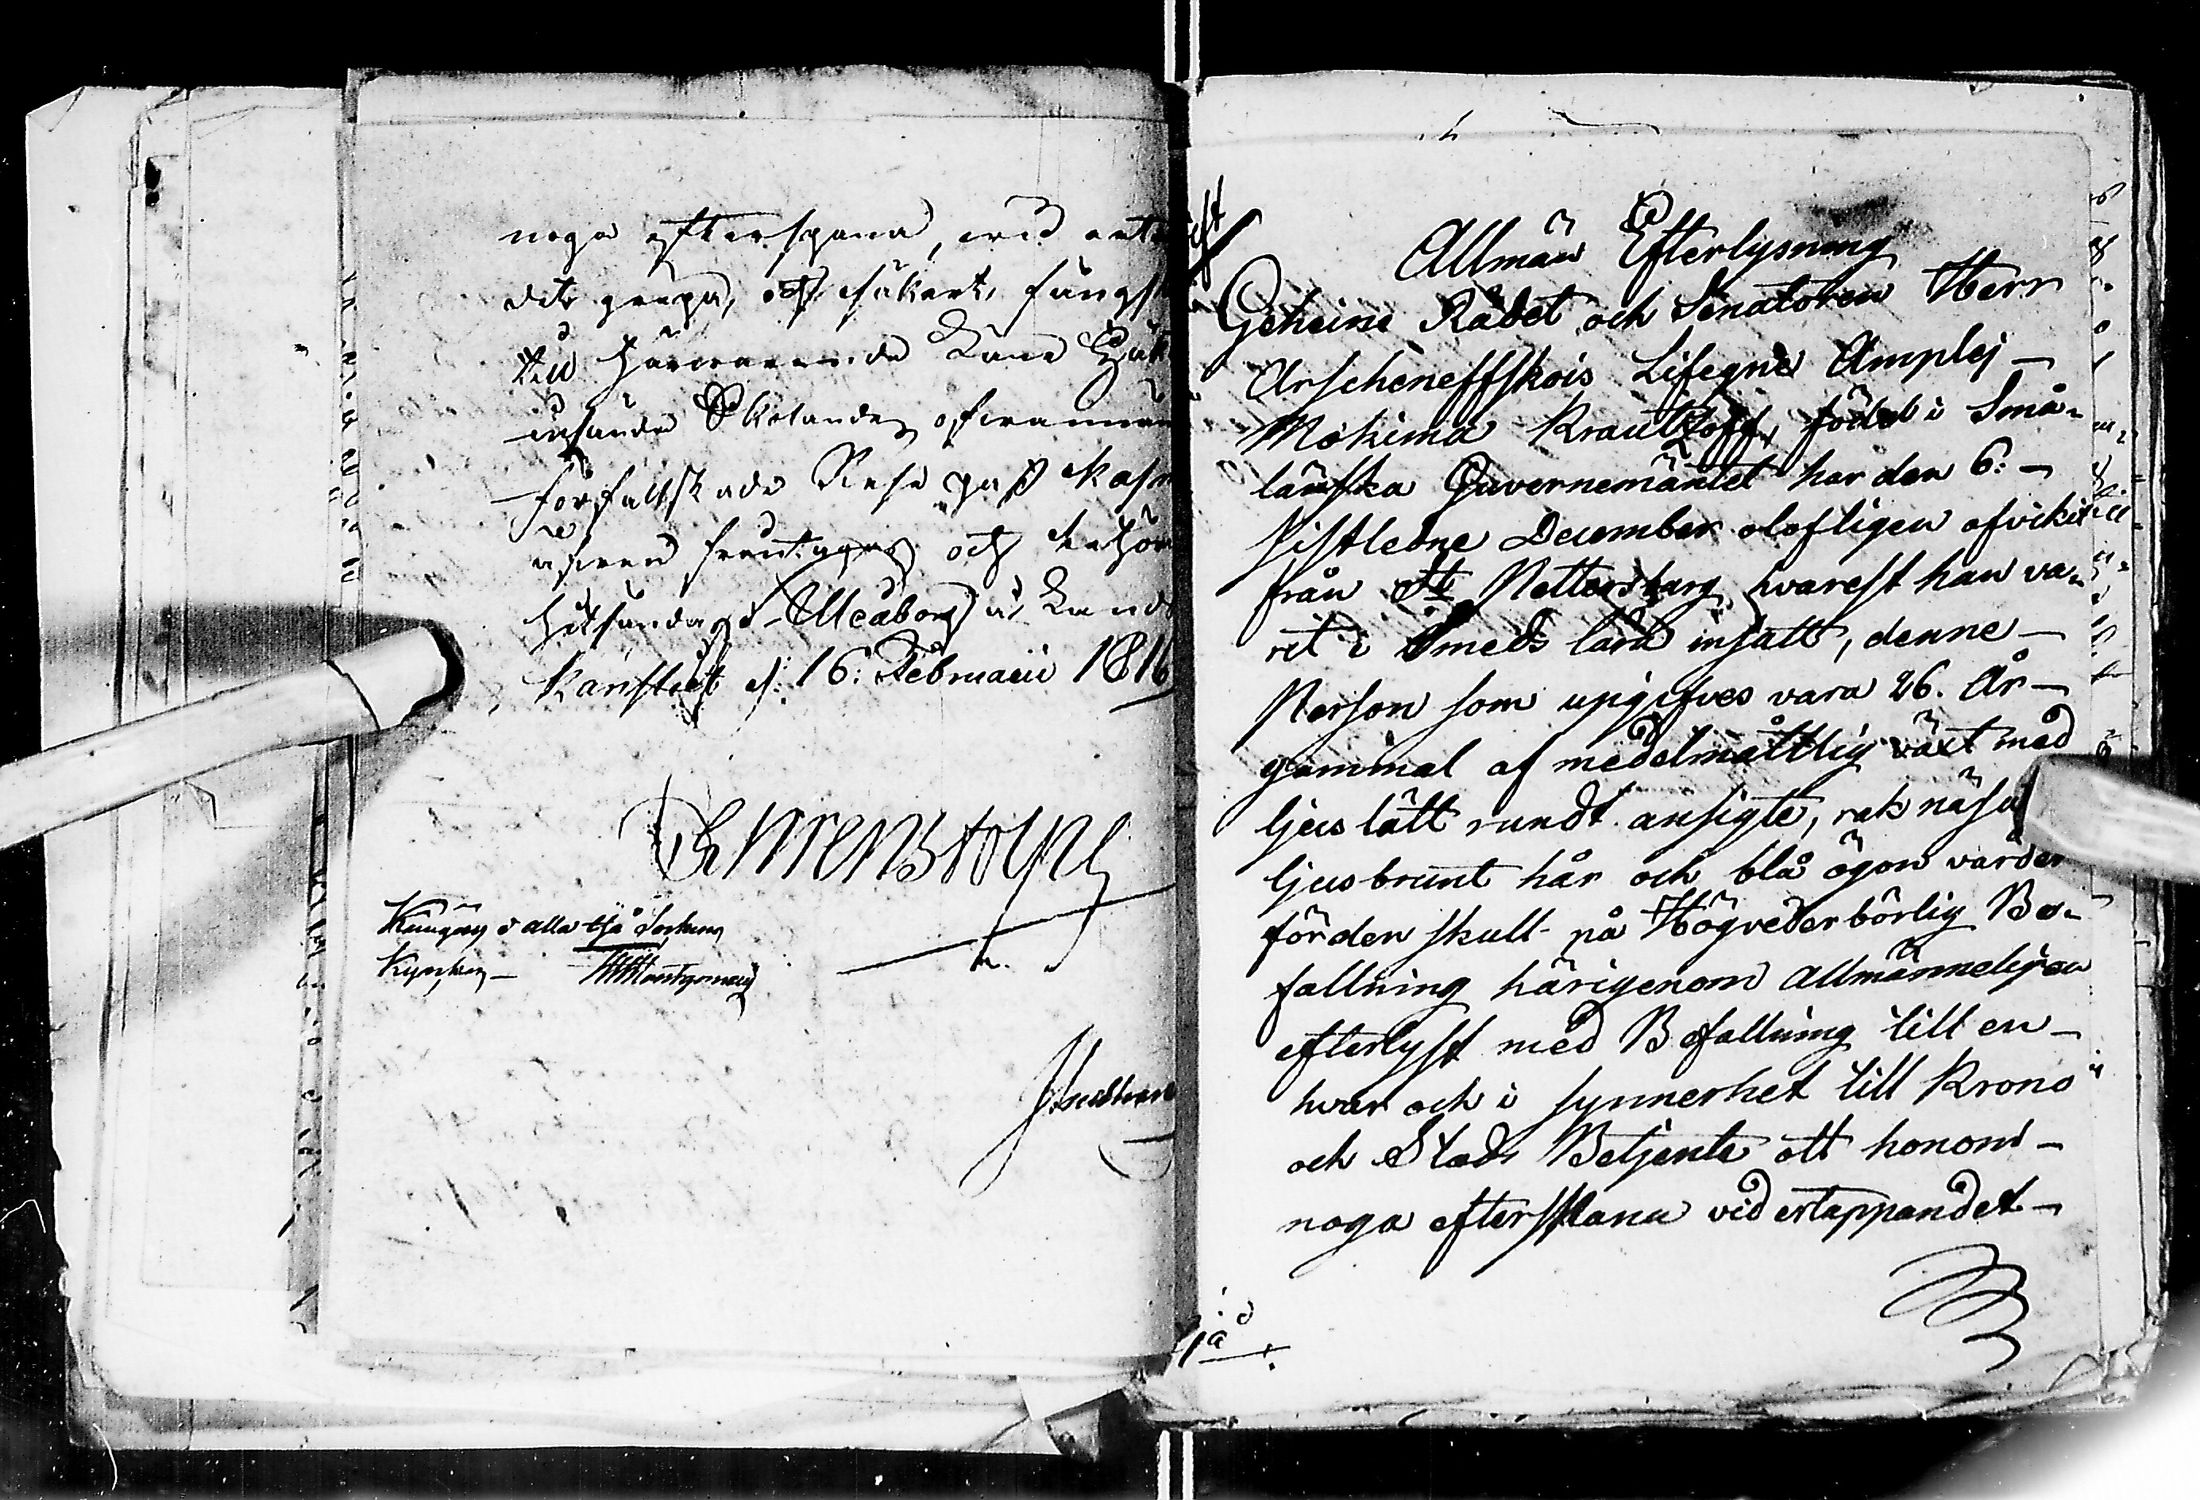 noga efterspana, vid ante
dit gripa, och säkert fängsl
till härvarande Läns Häk
insända Skolande ofvannämn
förfalskade Rese pass
äfven fråntagas och
hitsändas. Uleåborgs Lands
Kanslie d: 16: Februarii 1816
Ehrenstolpe
Kungjord i alla Socknar
Kyrkor
HMontgomery
Allmän Efterlysning
Geheime Rådet och Senatoren Herr
Arscheneffskois Lifegne Amplej
Mokima Krautkoff, född i Små-
länska Guvernemäntet har den 6:
sistledne December olofligen afvikit
från St Pettersburg, hvarest han va-
rit i Smeds lära insatt, denne
Person som upgifves vara 26. År
gammal af medelmåttlig växt med
ljuslätt rundt ansigte, rak näsa
ljusbrunt hår och blå ögon varder
förden skull på Högvederbörlig Be-
fallning härigenom Allmänneligen
efterlyst med Befallning till en
hvar och i synnerhet till Krono
och Stads Betjente att honom
noga efterspana vid ertappandet